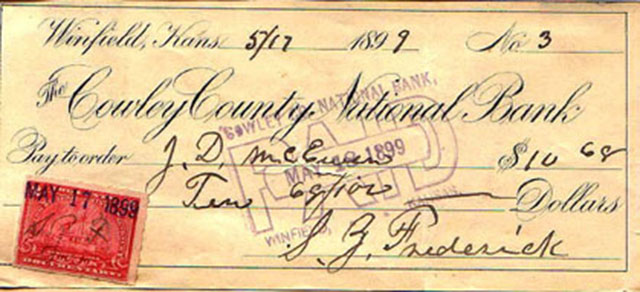 Winfield, Kans 5/17 1899 No 3
The Cowley County National Bank
COWLEY CO. NATIONAL BANK,
Pay to order J. D. McEwen $10 68
PAID
MAY 18 1899
Ten 68/100 Dollars
WINFIELD, KANSAS.
S. Z. Frederick
MAY 17 1899
S Z F
DOCUMENTARY